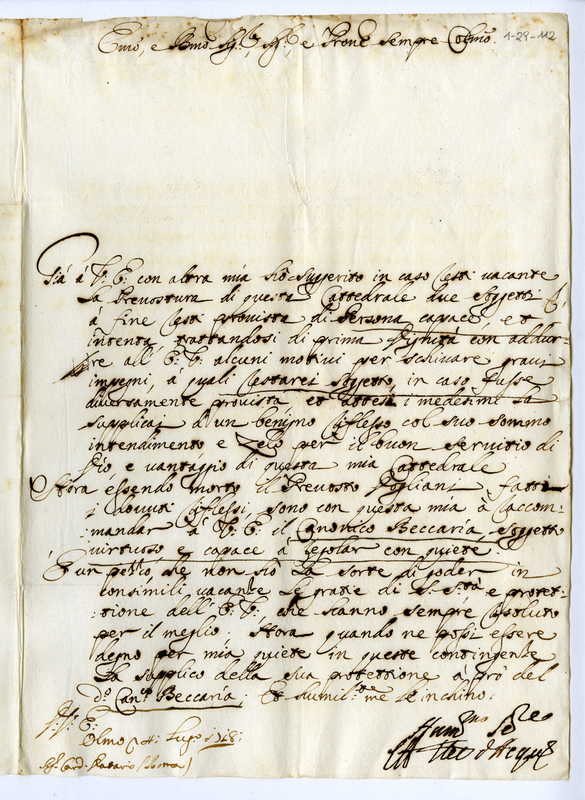 Emo, e Rmo Sig.r Sig.r e Prone sempre Colmo. 1-29-112
Già à V. E. con altra mia hò suggerito in caso resti vacante
la Prevostura di questa Cattedrale due soggetti
à fine resti provista di Persona capace, et
intenta, trattandosi di prima Dignità con addur-
re all' E. V. alcuni motivi per schivare gravi
impegni, a quali restarei soggetto, in caso fusse
diversamente provista et attesi i medesimi la
supplicai d'un benigno riflesso col suo sommo
intendimento e Zelo per il buon servitio di
Dio e vantaggio di questa mia Cattedrale
Hora essendo morto il Prevosto fatti
i dovuti riflessi, sono con questa mia à raccom-
:mandar à V. E. il Canonico Beccaria, soggetto
virtuoso e capace à regolar con quiete.
È un pezzo che non hò la sorte di poder in
consimili vacanze le gratie di S. Stà e protet-
:tione dell' E. V. che hanno sempre risoluto
per il meglio. Hora quando ne possi essere
degno per mia quiete in queste contingente
la supplico della sua protettione à prò del
d.o Can.co Beccaria; et humil.te me le inchino.
V. E.
Olmo Lugo
Sig.r Card. Datario (Roma)
Hum.mo Se.re
d'Acqui